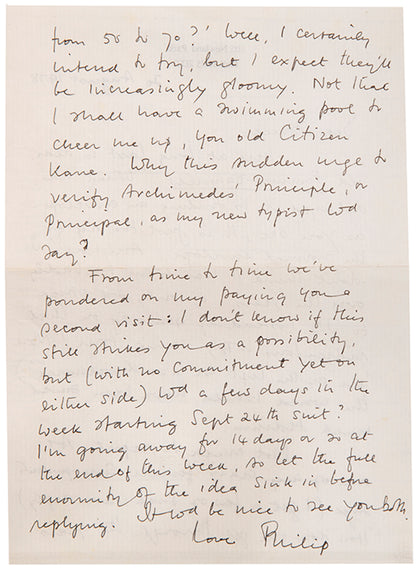 from 50 to 70?' Well, I certainly
intend to try, but I expect they'll
be increasingly gloomy. Not that
I shall have a swimming pool to
cheer me up, you old Citizen
Kane. Why this sudden urge to
verify Archimedes' Principle, or
Principal, as my new typist wd
say?
From time to time we've
pondered on my paying you a
second visit: I don't know if this
still strikes you as a possibility,
but (with no commitment yet on
either side) wd a few days in the
week starting Sept 24th suit?
I'm going away for 14 days or so at
the end of this week, so let the full
enormity of the idea sink in before
replying. It wd be nice to see you both.
Love Philip